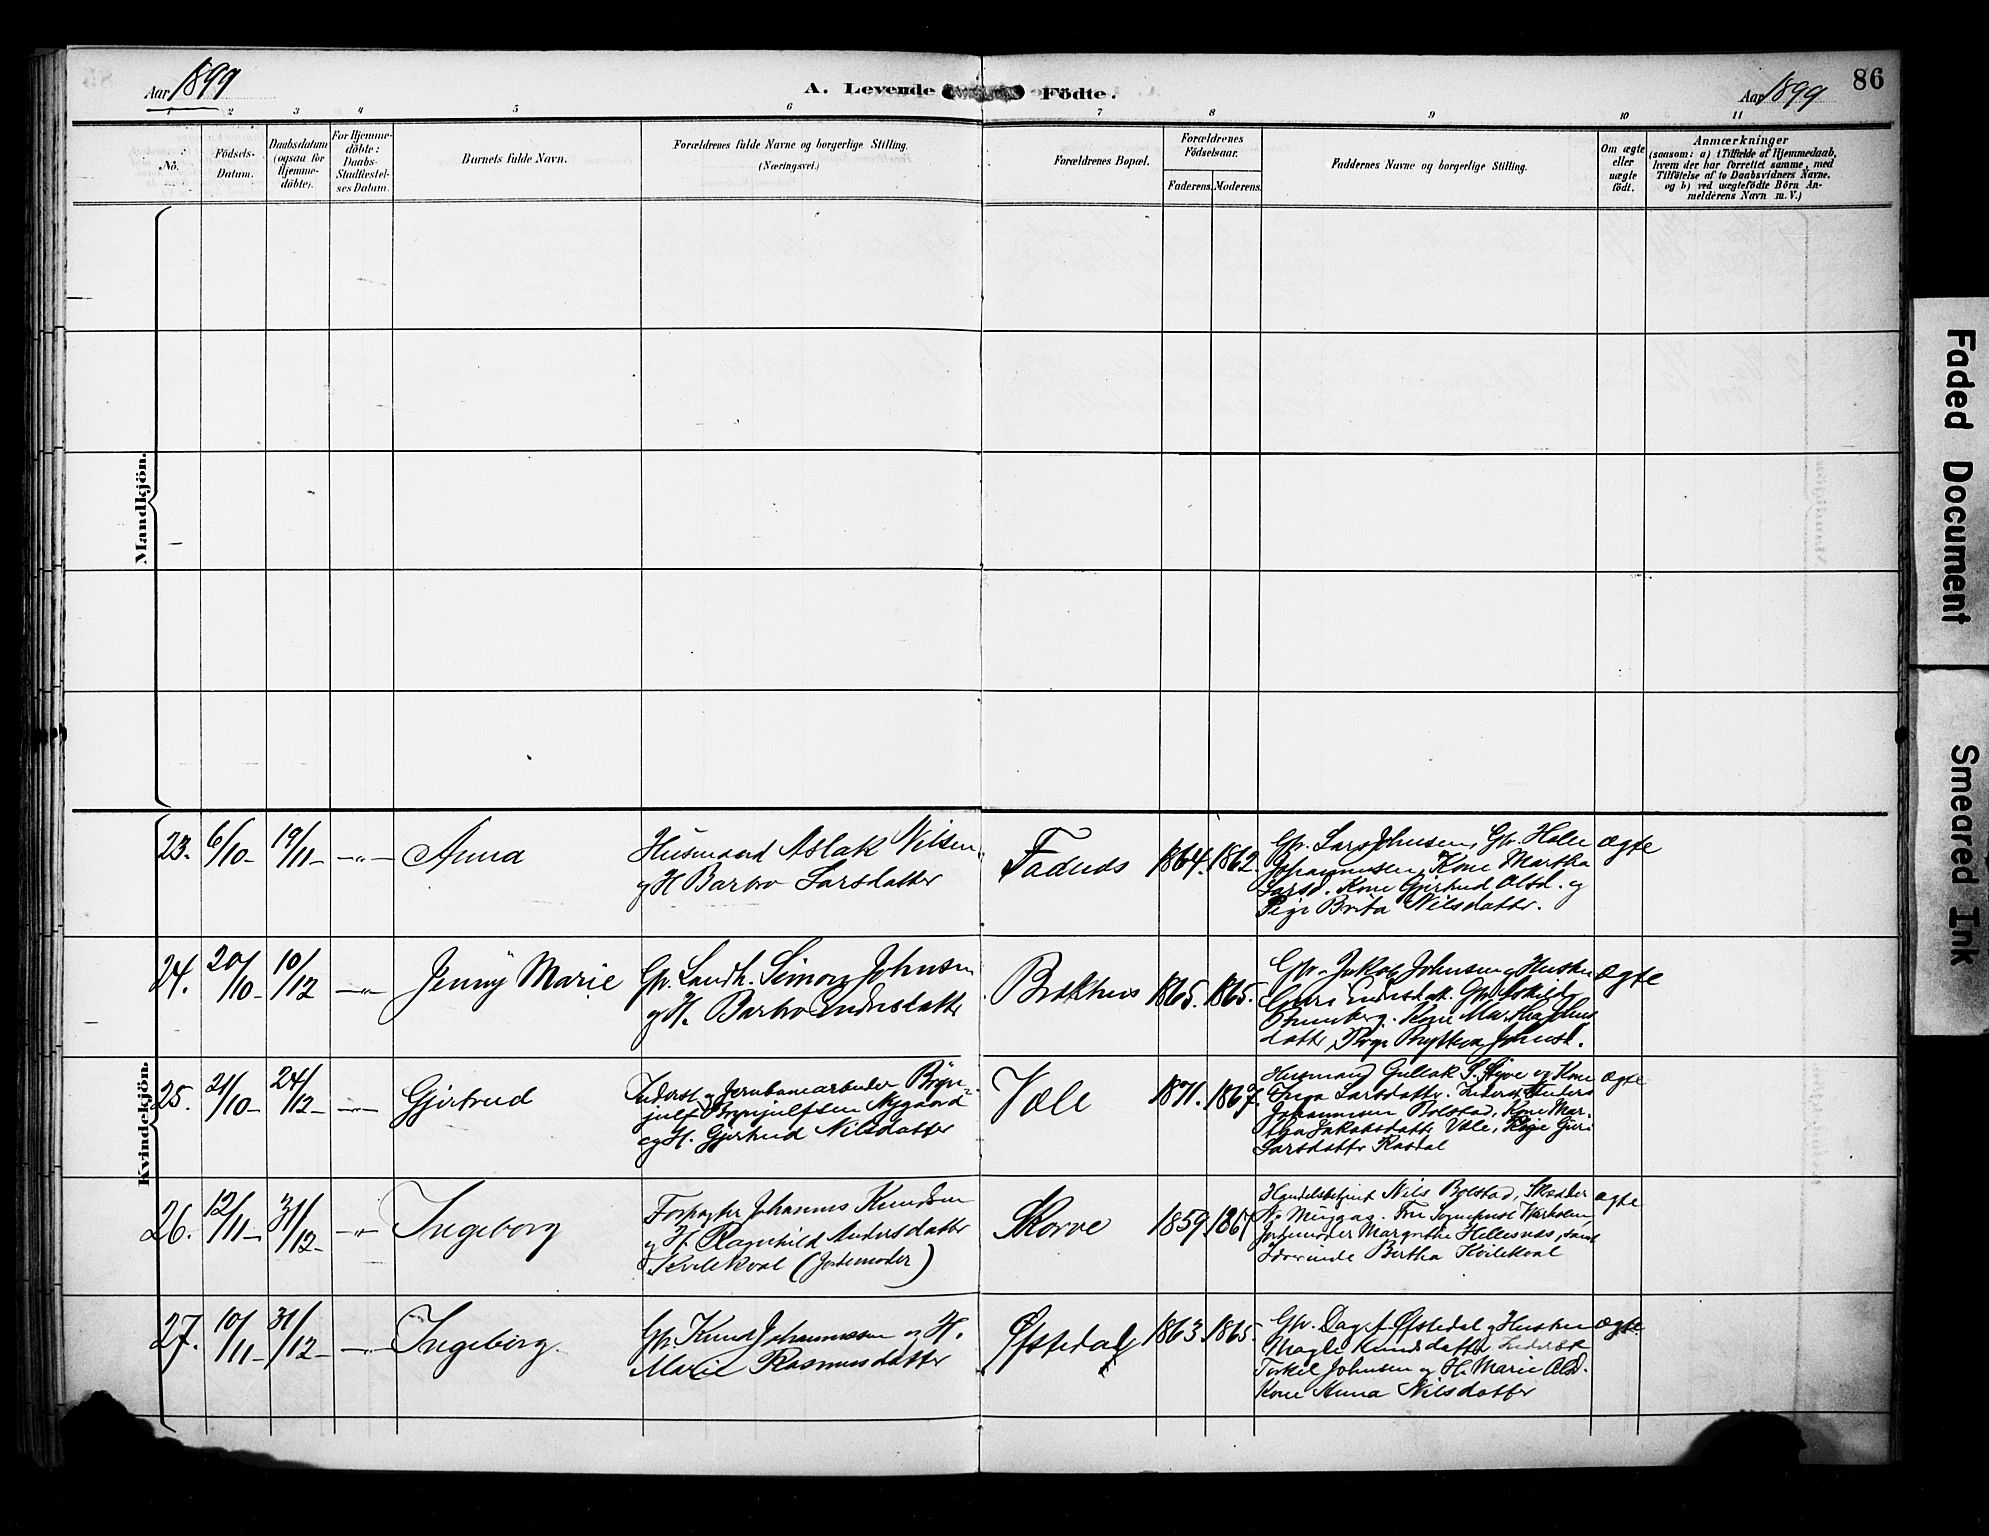 Aar 1899
A. Levende Födte.
Aar 1899
86
1 2 3 4 5 6 7 8 9 10 11
No.
Födsels-
Datum.
Daabsdatum
(ogsaa for
Hjemme-
döbte).
For Hjemme-
döbte:
Daabs-
Stadfæstel-
ses Datum.
Barnets fulde Navn.
Forældrenes fulde Navne og borgerlige Stilling.
(Næringsvei.)
Forældrenes Bopæl.
Forældrenes
Födselsaar.
Faderens. Moderens.
Faddernes Navne og borgerlige Stilling.
Om ægte
eller
uægte
födt.
Anmærkninger
(saasom: a) i Tilfælde af Hjemmedaab,
hvem der har forrettet samme, med
Tilföielse af to Daabsvidners Navne.
og b) ved uægtefödte Börn An-
melderens Navn m. V.)
Mandkjön.
Kvindekjön.
23. 6/10 19/11 Anna
Husmand Aslak Nilsen
og H Barbro Larsdatter
Fadnes 1864. 1862.
Gbr. Lars Johnsen, Gbr.
Johannessen, Kone Martha
Larsd. Kone Gjertrud Olsd. og
Pige Brita Nilsdatter.
ægte
24. 20/10 10/12 Jenny Marie
Gbr. Landh. Simon Johnsen
og H. Barbro Endresdatter
Brækhus 1865. 1865.
Gbr. Jakob Johnsen og Hustru
Endresdatt. Gbr.
Kone Martha Johns
datter, Pige
ægte
25. 21/10 24/12 Gjertrud
Inderst og Jernbanearbeider Bryn-
julf Brynjulfsen Nygaard
og H. Gjertrud Nilsdatter
Væle 1871. 1867.
Husmand Gullak S. og Kone
Larsdatter. Inderst Anders
Johannesen Bolstad, Kone Mar-
tha Jakobsdatter Væle, Pige Guri
Larsdatter Rasdal
ægte
26. 12/11 31/12 Ingeborg
Forpagter Johannes Knudsen
og H. Ragnhild Andersdatter
Kvilekval (Jordemoder)
Skorve 1859. 1867
Handelsbetjent Nils Bolstad, Skrædder
Fru
Jordemoder Margrethe Hellesnæs, samt
Bertha Kvilekval
ægte
27. 10/11 31/12 Ingeborg.
Gbr. Knud Johannessen og H.
Marie Rasmusdatter
Øfstedal 1863. 1865.
Gbr. Dag Øfstedal og Hustru
Magle Knudsdatter Inderst
Torkel Johnsen og H. Marie Olsd.
Kone Anna Nilsdatter
ægte
Faded Document
Smeared Ink